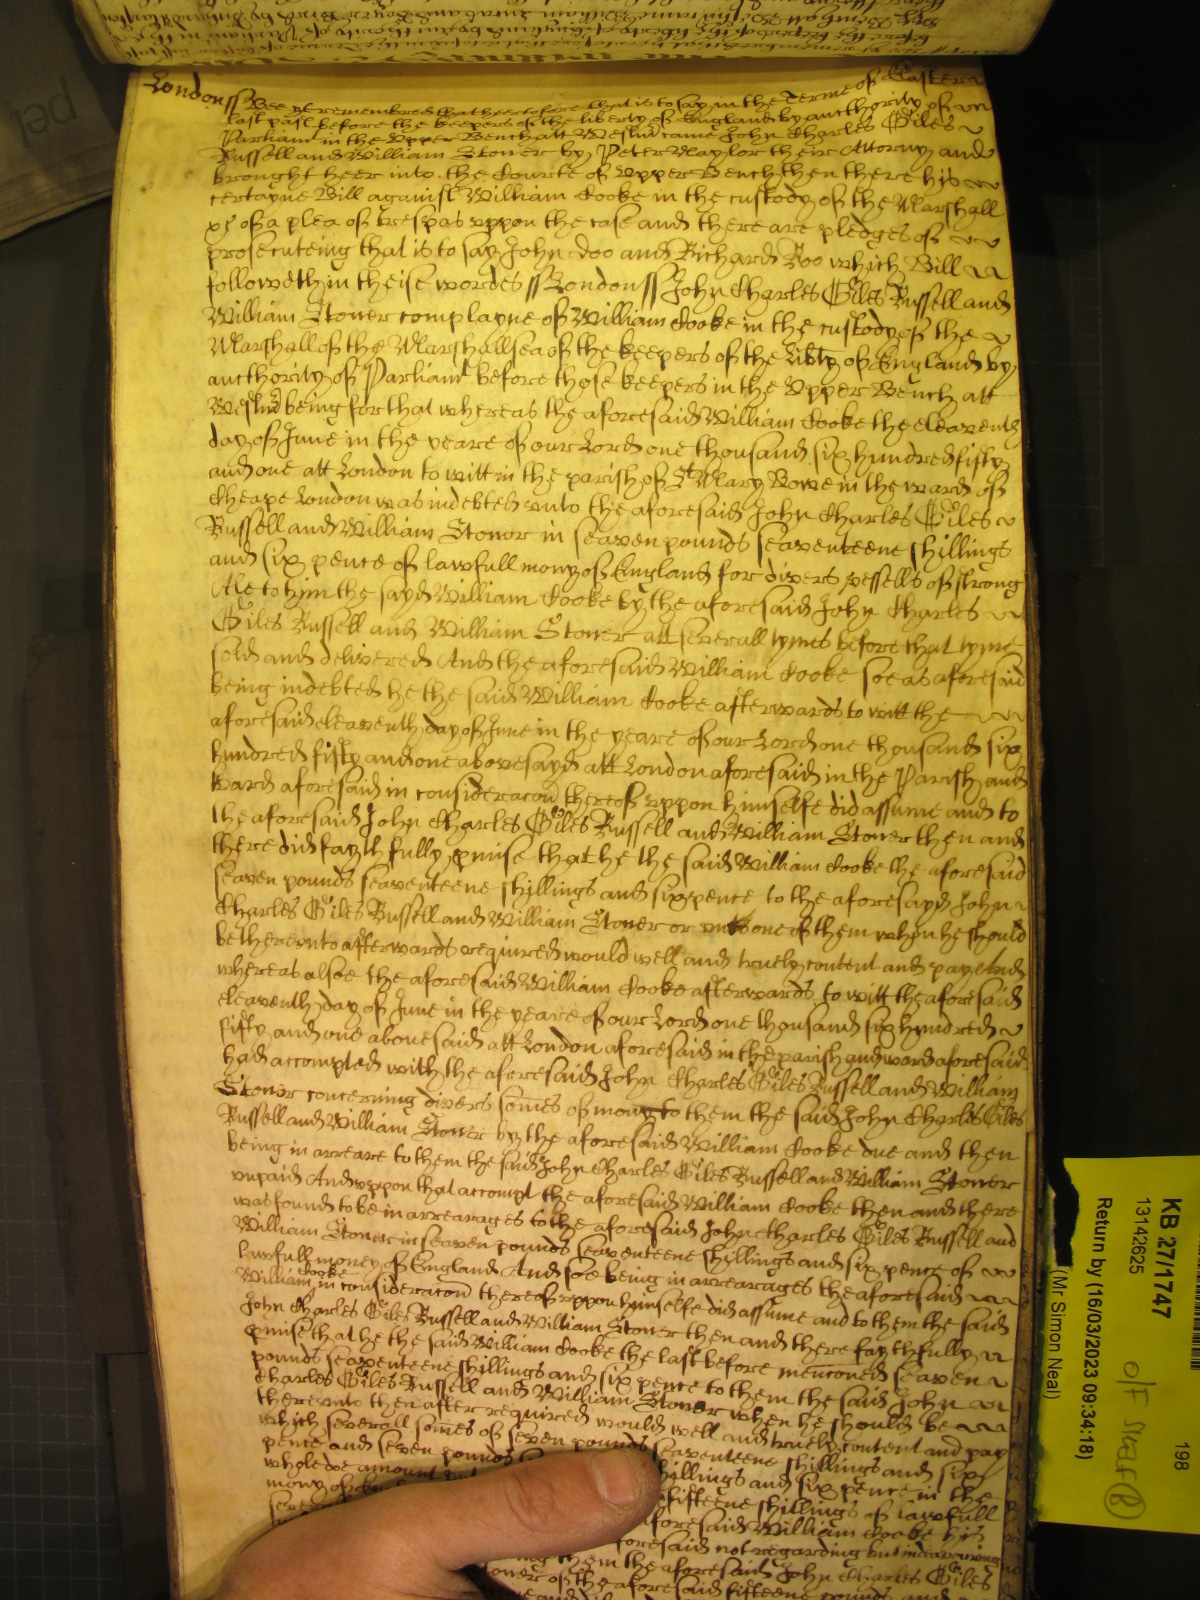 London ss Bee yt remembred that heretofore that is to say in the Terme of Easter
last past before the keepers of the liberty of England by aucthority of
Parliamt in the Upper Bench att Westmr came John Charles Giles
Russell and William Stoner by Peter Naylor their Attorny and
brought heer into the Courte of Upper Bench then there his
certayne Bill against William Cooke in the custody of the Marshall
&c of a plea of trespas uppon the case and there are pledges of
prosecuteing that is to say John Doo and Richard Roo which Bill
followeth in theise wordes ss London ss John Charles Giles Russell and
William Stoner complayne of William Cooke in the custody of the
Marshall of the Marshallsea of the keepers of the libty of England by
aucthority of Parliamt before those keepers in the Upper Bench att
Westmr being for that whereas the aforesaid William Cooke the eleaventh
day of June in the yeare of our Lord one thousand six hundred fifty
and one att London to witt in the parish of St Mary Bowe in the ward of
Cheape London was indebted unto the aforesaid John Charles Giles
Russell and William Stoner in seaven pounds seaventeene shillings
and six pence of lawfull mony of England for divers vessells of strong
Ale to him the sayd William Cooke by the aforesaid John Charles
Giles Russell and William Stoner att severall tymes before that tyme
sold and delivered And the aforesaid William Cooke soe as aforesaid
being indebted he the said William Cooke afterwards to witt the
aforesaid eleaventh day of June in the yeare of our Lord one thousand six
hundred fifty and one abovesayd att London aforesaid in the Parish and
Ward aforesaid in consideracon thereof uppon himselfe did assume and to
the aforesaid John Charles Giles Russell and William Stoner then and
there did faythfully pmise that he the said William Cooke the aforesaid
seaven pounds seaventeene shillings and sixpence to the aforesayd John
Charles Giles Russell and William Stoner or unto one of them when he should
be thereunto afterwards required would well and truely content and pay And
whereas alsoe the aforesaid William Cooke afterwards to witt the aforesaid
eleaventh day of June in the yeare of our Lord one thousand six hundred
fifty and one abovesaid att London aforesaid in the parish and ward aforesaid
had accompted with the aforesaid John Charles Giles Russell and William
Stoner concerning divers somes of mony to them the said John Charles Giles
Russell and William Stoner by the aforesaid William Cooke due and then
being in arreare to them the said John Charles Giles Russell and William Stoner
unpaid And uppon that accompt the aforesaid William Cooke then and there
was found to be in arrearages to the aforesaid John Charles Giles Russell and
William Stoner in seaven pounds seaventeene shillings and six pence of
lawfull money of England And soe being in arrearages the aforesaid
William Cooke in consideracon thereof uppon himselfe did assume and to them the said
John Charles Giles Russell and William Stoner then and there faythfully
pmise that he the said William Cooke the last before menconed seaven
pounds seaventeene shillings and six pence to them the said John
Charles Giles Russell and William Stoner when he should be
thereunto then after required would well and truely content and pay
which severall somes of seven pounds seaventeene shillings and six
pence and seven pounds shillings and six pence in the
whole doe amount fifteene shillings of lawfull
mony of aforesaid William Cooke his
aforesaid not regarding but indeavouring
them the aforesaid John Charles Giles
Stoner of the aforesaid fifteene pounds and
KB 27/1747
13142625
198
Return by (16/03/2023 09:34:18)
(Mr Simon Neal)